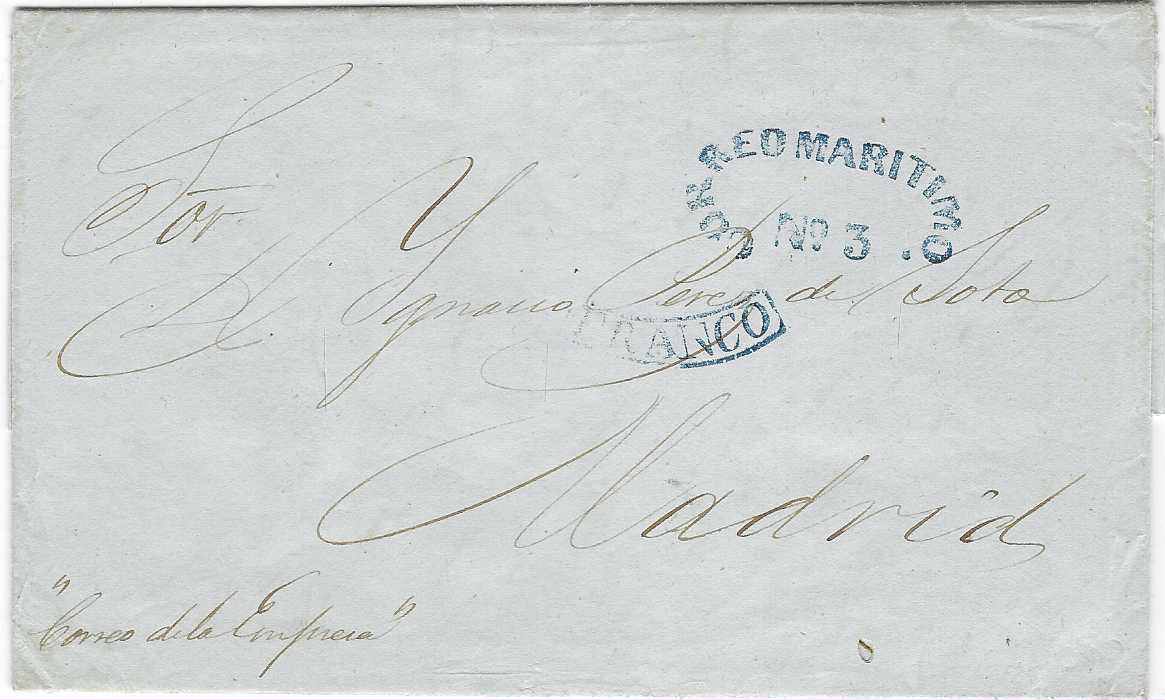 CORREO MARITIMO
Nº 3 .
Sor.
D. Ygnacio Perez de Soto
FRANCO
Madrid
"Correo de la Empresa"